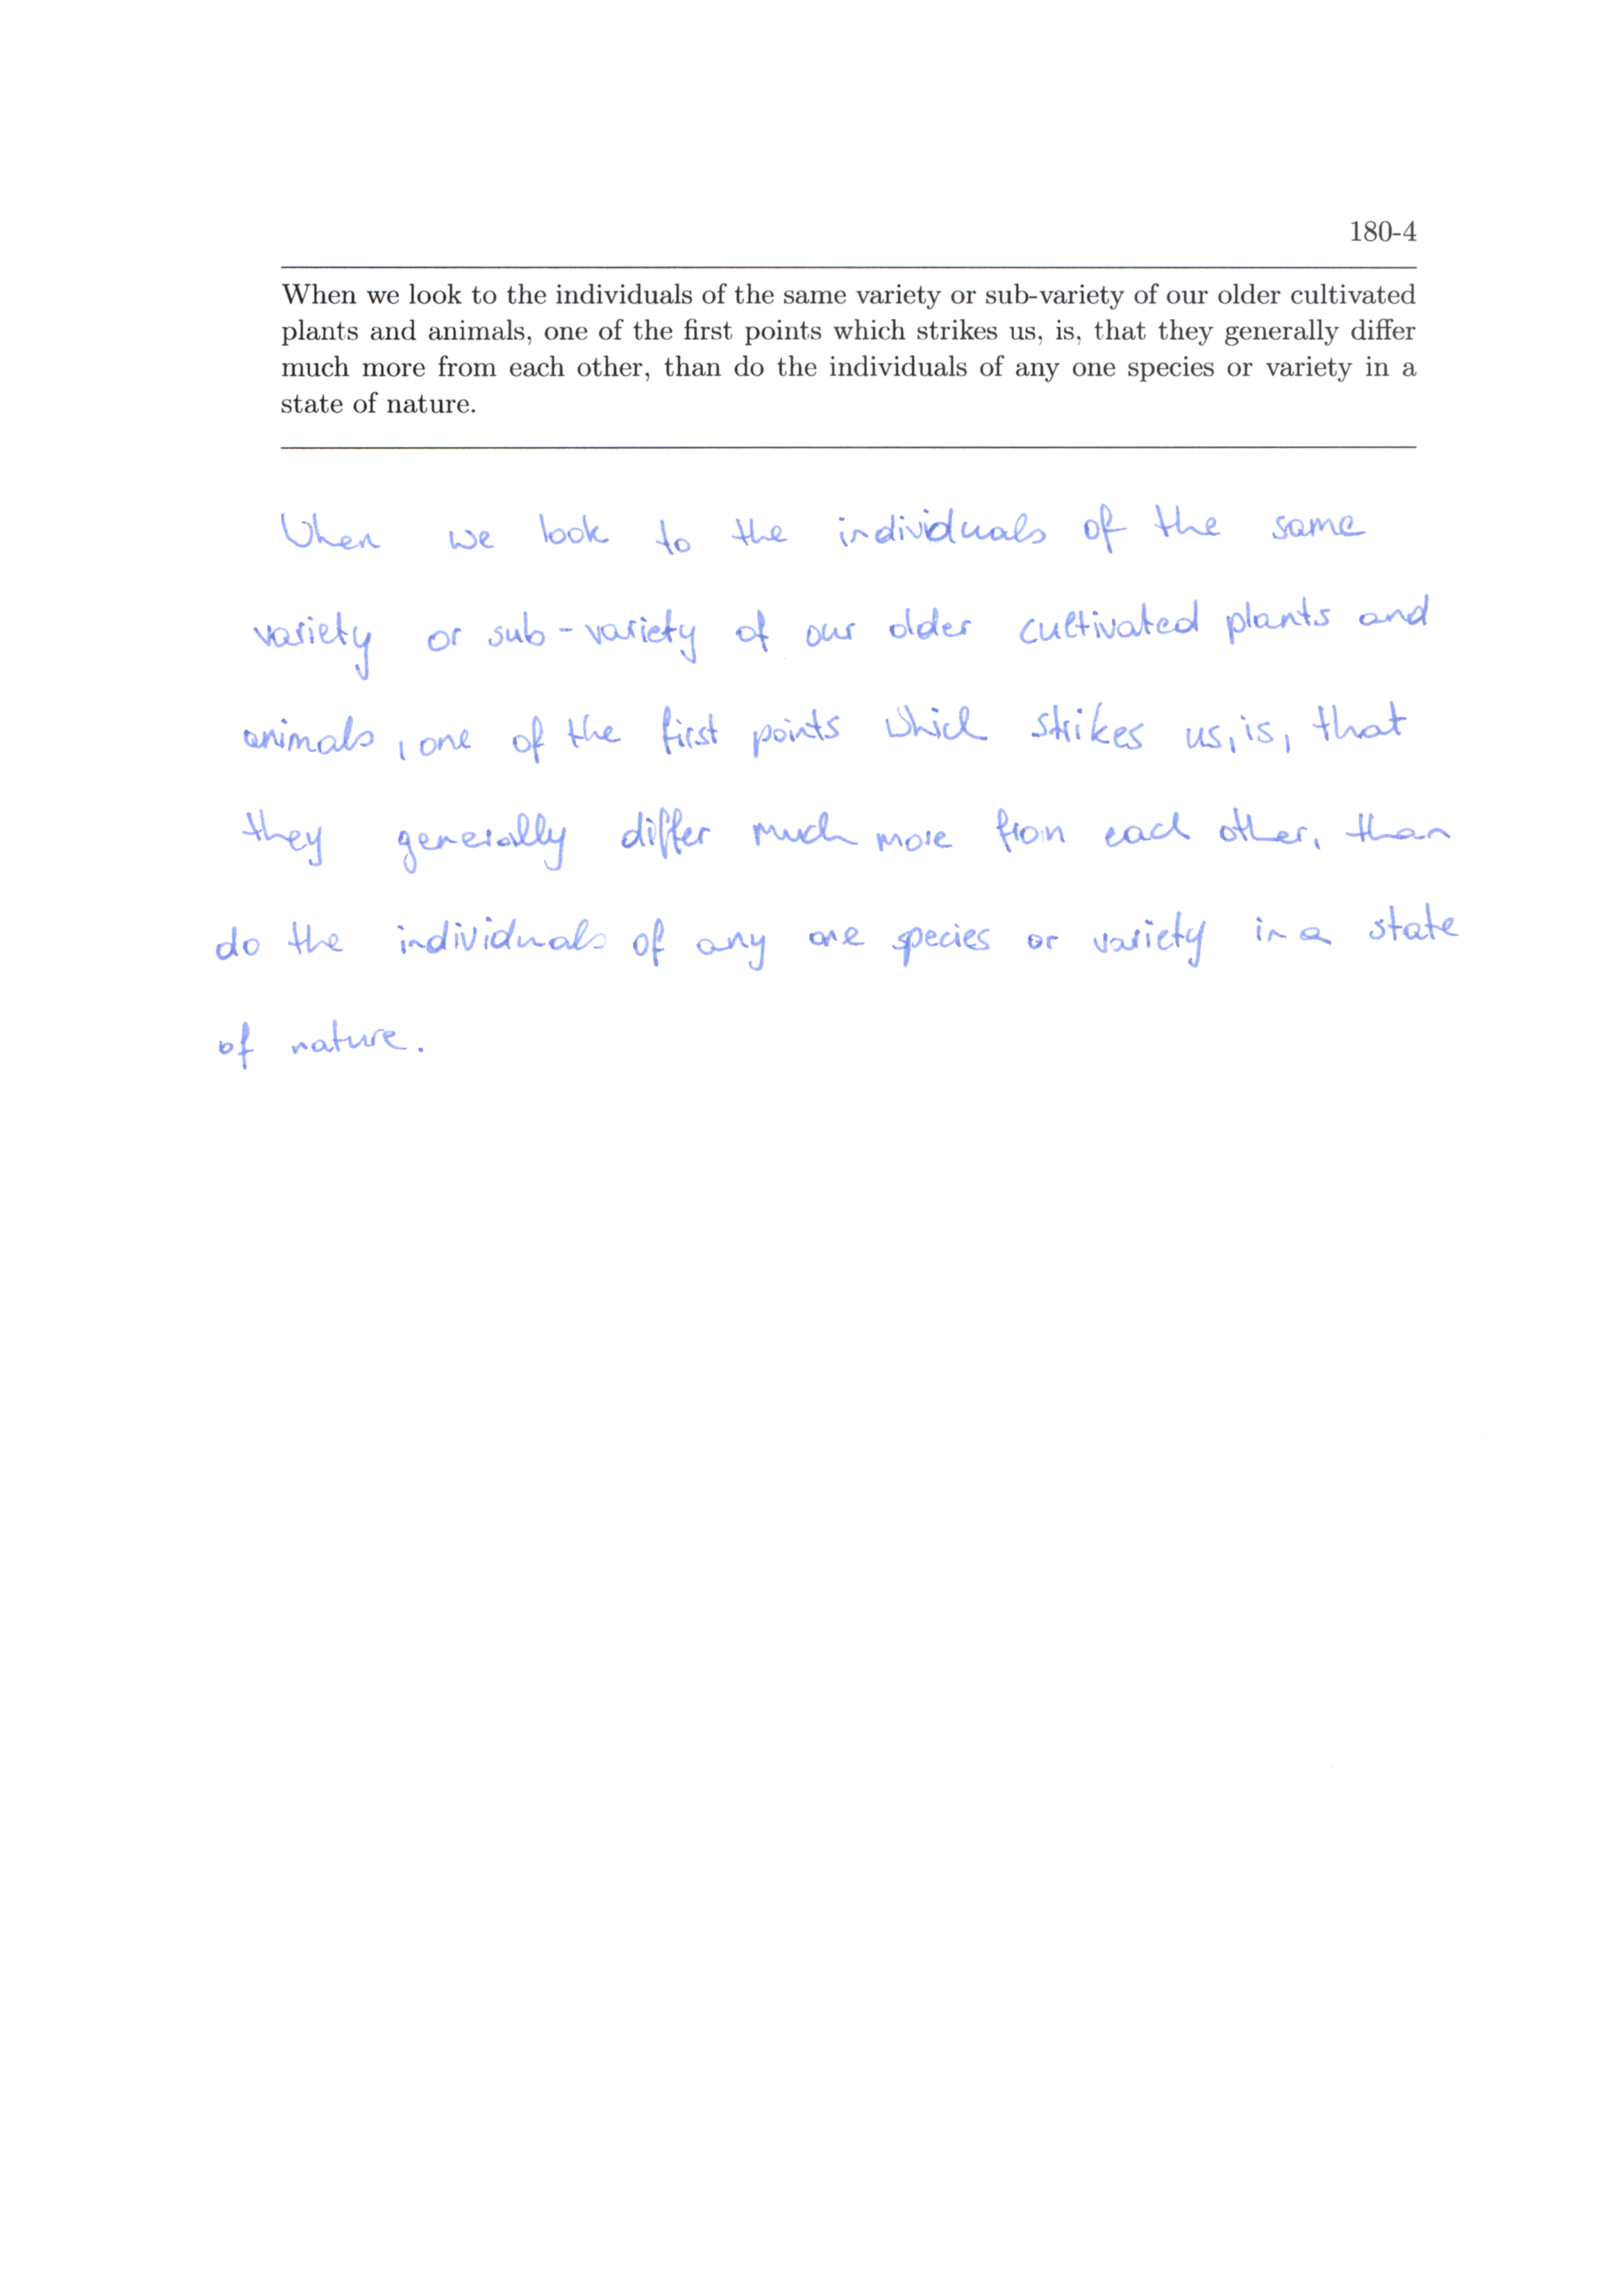 180-4
When we look to the individuals of the same variety or sub-variety of our older cultivated
plants and animals, one of the first points which strikes us, is, that they generally differ
much more from each other, than do the individuals of any one species or variety in a
state of nature.
When we look to the individuals of the same
variety or sub-variety of our older cultivated plants and
animals, one of the first points which strikes us, is, that
they generally differ much more from each other, than
do the individuals of any one species or variety in a state
of nature.